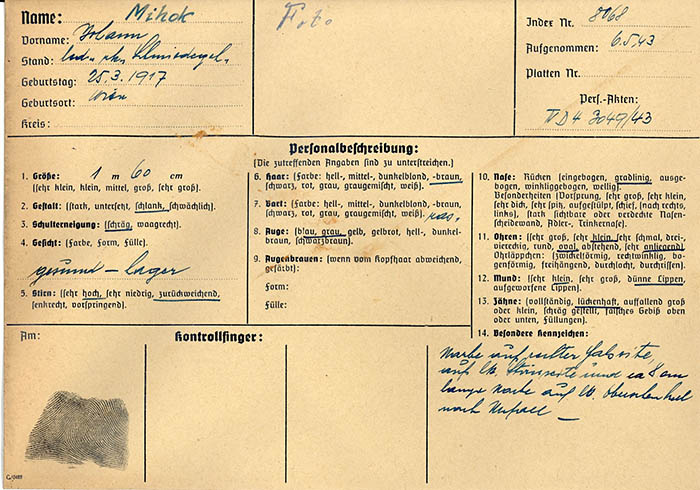 Name: Mihok
Vorname: Johann
Stand: led. rk.
Geburtstag: 25.3.1917
Geburtsort: Wien
Kreis:
Foto
Index Nr. 8068
Aufgenommen: 6.5.43
Platten Nr.
Pers.-Akten:
IV D 4 3049/43
Personalbeschreibung:
(Die zutreffenden Angaben sind zu unterstreichen.)
1. Größe: 1 m 60 cm
(sehr klein, klein, mittel, groß, sehr groß).
2. Gestalt: (stark, untersetzt, schlank, schwächlich).
3. Schulterneigung: (schräg, waagrecht).
4. Gesicht: (Farbe, Form, Fülle).
gesund –
5. Stirn: (sehr hoch, sehr niedrig, zurückweichend,
senkrecht, vorspringend).
6. Haar: (Farbe: hell-, mittel-, dunkelblond, -braun,
schwarz, rot, grau, graugemischt, weiß).
7. Bart: (Farbe: hell-, mittel-, dunkelblond, -braun,
schwarz, rot, grau, graugemischt, weiß). ras.
8. Auge: (blau, grau, gelb, gelbrot, hell-, dunkel-
braun, schwarzbraun).
9. Augenbrauen: (wenn vom Kopfhaar abweichend,
gefärbt):
Form:
Fülle:
10. Nase: Rücken (eingebogen, gradlinig, ausge-
bogen, winkliggebogen, wellig).
Besonderheiten (Vorsprung, sehr groß, sehr klein,
sehr dick, sehr spitz, aufgestülpt, schief, (nach rechts,
links), stark sichtbare oder verdeckte Nasen-
scheidewand, Adler-, Trinkernase).
11. Ohren: (sehr groß, sehr klein, sehr schmal, drei-
viereckig, rund, oval, abstehend, sehr anliegend)
Ohrläppchen: (zwickelförmig, rechtwinklig, bo-
genförmig, freihängend, durchlocht, durchrissen).
12. Mund: (sehr klein, sehr groß, dünne Lippen,
aufgeworfene Lippen).
13. Zähne: (vollständig, lückenhaft, auffallend groß
oder klein, schräg gestellt, falsches Gebiß oben
oder unten, Füllungen).
14. Besondere Kennzeichen:
Narbe auf rechter
auf lk. Stirnseite und ca 8 cm
lange Narbe auf lk. Oberschenkel
nach
Am:
Kontrollfinger: